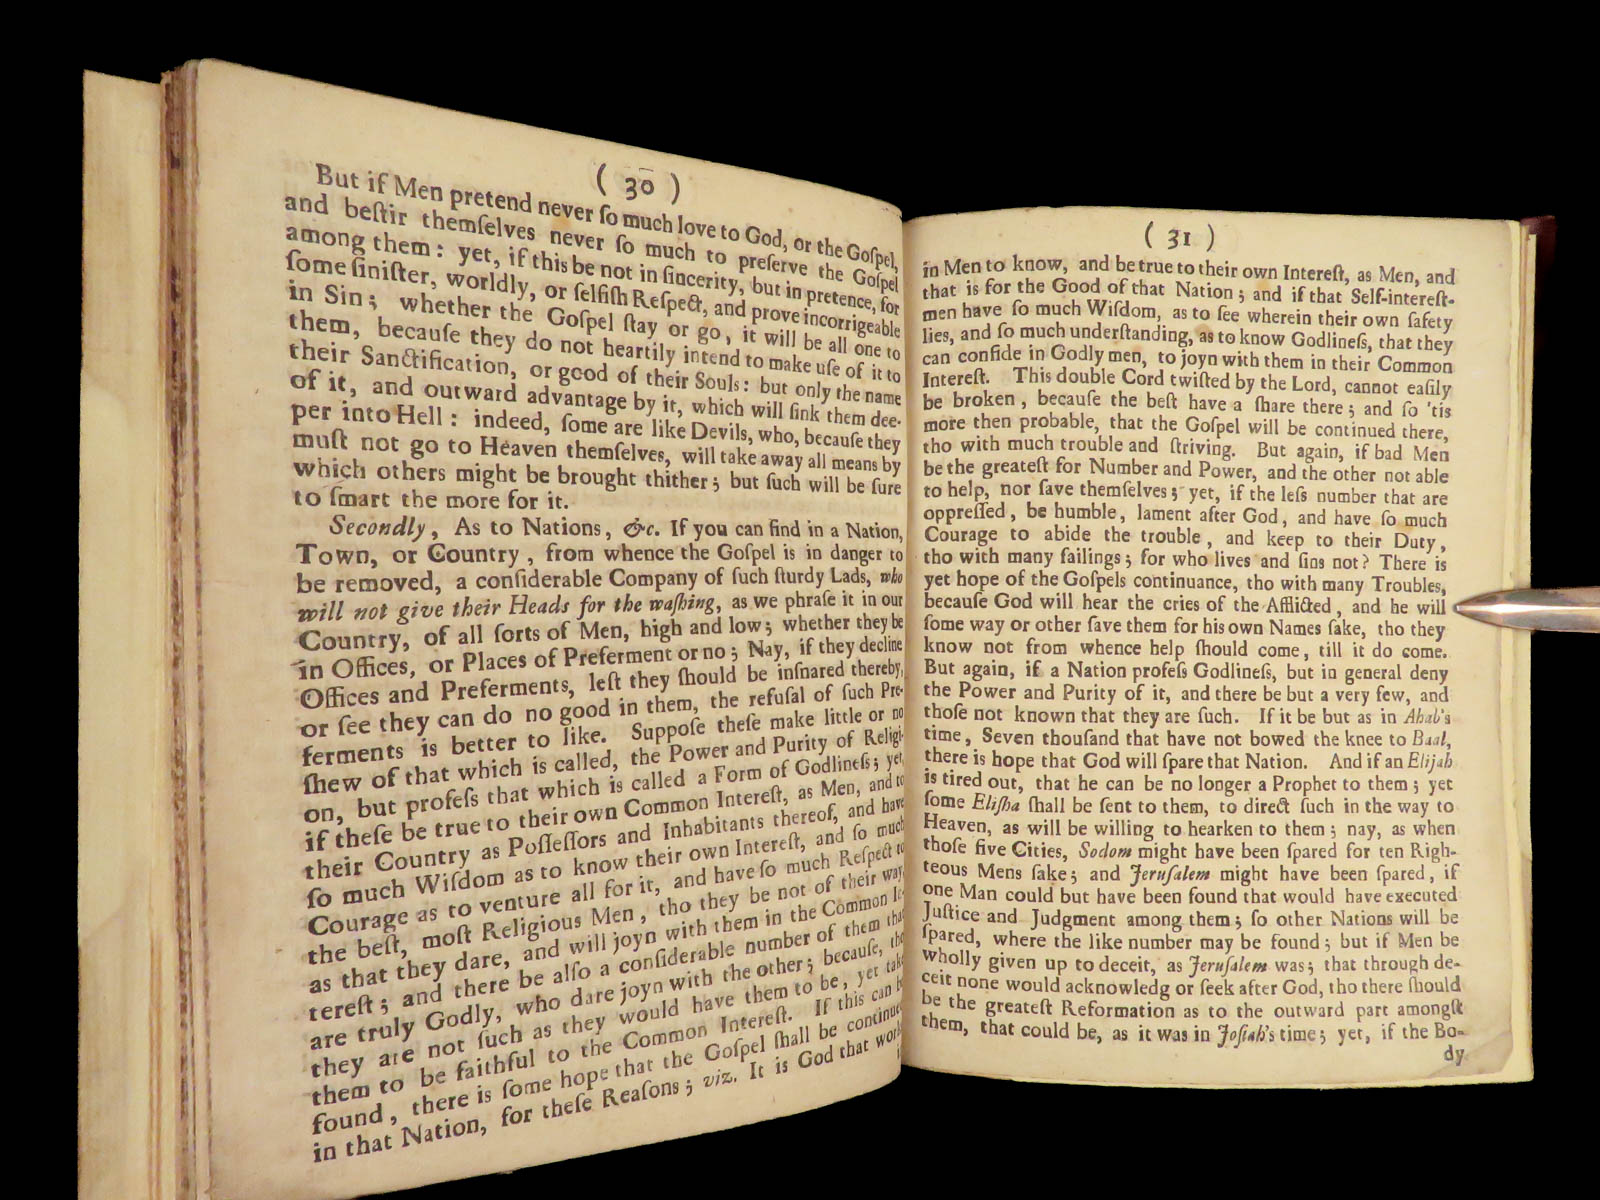 ( 30 )
But if Men pretend never ſo much love to God, or the Goſpel,
and beſtir themſelves never ſo much to preſerve the Goſpel
among them: yet, if this be not in ſincerity, but in pretence, for
ſome ſiniſter, worldly, or ſelfiſh Reſpect, and prove incorrigeable
in Sin; whether the Goſpel ſtay or go, it will be all one to
them, becauſe they do not heartily intend to make uſe of it to
their Sanctification, or good of their Souls: but only the name
of it, and outward advantage by it, which will ſink them dee-
per into Hell: indeed, ſome are like Devils, who, becauſe they
muſt not go to Heaven themſelves, will take away all means by
which others might be brought thither; but ſuch will be ſure
to ſmart the more for it.
Secondly, As to Nations, &c. If you can find in a Nation,
Town, or Country, from whence the Goſpel is in danger to
be removed, a conſiderable Company of ſuch ſturdy Lads, who
will not give their Heads for the waſhing, as we phraſe it in our
Country, of all ſorts of Men, high and low; whether they be
in Offices, or Places of Preferment or no; Nay, if they decline
Offices and Preferments, leſt they ſhould be inſnared thereby,
or ſee they can do no good in them, the refuſal of ſuch Pre-
ferments is better to like. Suppoſe theſe make little or no
ſhew of that which is called, the Power and Purity of Religi-
on, but profeſs that which is called a Form of Godlineſs; yet
if theſe be true to their own Common Intereſt, as Men, and to
their Country as Poſſeſſors and Inhabitants thereof, and have
ſo much Wiſdom as to know their own Intereſt, and ſo much
Courage as to venture all for it, and have ſo much Reſpect to
the beſt, moſt Religious Men, tho they be not of their way,
as that they dare, and will joyn with them in the Common In-
tereſt; and there be alſo a conſiderable number of them that
are truly Godly, who dare joyn with the other; becauſe, tho
they are not ſuch as they would have them to be, yet take
them to be faithful to the Common Intereſt. If this can be
found, there is ſome hope that the Goſpel ſhall be continued
in that Nation, for theſe Reaſons; viz. It is God that work
( 31 )
in Men to know, and be true to their own Intereſt, as Men, and
that is for the Good of that Nation; and if that Self-intereſt-
men have ſo much Wiſdom, as to ſee wherein their own ſafety
lies, and ſo much underſtanding, as to know Godlineſs, that they
can confide in Godly men, to joyn with them in their Common
Intereſt. This double Cord twiſted by the Lord, cannot eaſily
be broken, becauſe the beſt have a ſhare there; and ſo 'tis
more then probable, that the Goſpel will be continued there,
tho with much trouble and ſtriving. But again, if bad Men
be the greateſt for Number and Power, and the other not able
to help, nor ſave themſelves; yet, if the leſs number that are
oppreſſed, be humble, lament after God, and have ſo much
Courage to abide the trouble, and keep to their Duty,
tho with many failings; for who lives and ſins not? There is
yet hope of the Goſpels continuance, tho with many Troubles,
becauſe God will hear the cries of the Afflicted, and he will
ſome way or other ſave them for his own Names ſake, tho they
know not from whence help ſhould come, till it do come.
But again, if a Nation profeſs Godlineſs, but in general deny
the Power and Purity of it, and there be but a very few, and
thoſe not known that they are ſuch. If it be but as in Ahab's
time, Seven thouſand that have not bowed the knee to Baal,
there is hope that God will ſpare that Nation. And if an Elijah
is tired out, that he can be no longer a Prophet to them; yet
ſome Eliſha ſhall be ſent to them, to direct ſuch in the way to
Heaven, as will be willing to hearken to them; nay, as when
thoſe five Cities, Sodom might have been ſpared for ten Righ-
teous Mens ſake; and Jeruſalem might have been ſpared, if
one Man could but have been found that would have executed
Juſtice and Judgment among them; ſo other Nations will be
ſpared, where the like number may be found; but if Men be
wholly given up to deceit, as Jeruſalem was; that through de-
ceit none would acknowledg or ſeek after God, tho there ſhould
be the greateſt Reformation as to the outward part amongſt
them, that could be, as it was in Joſiah's time; yet, if the Bo-
dy